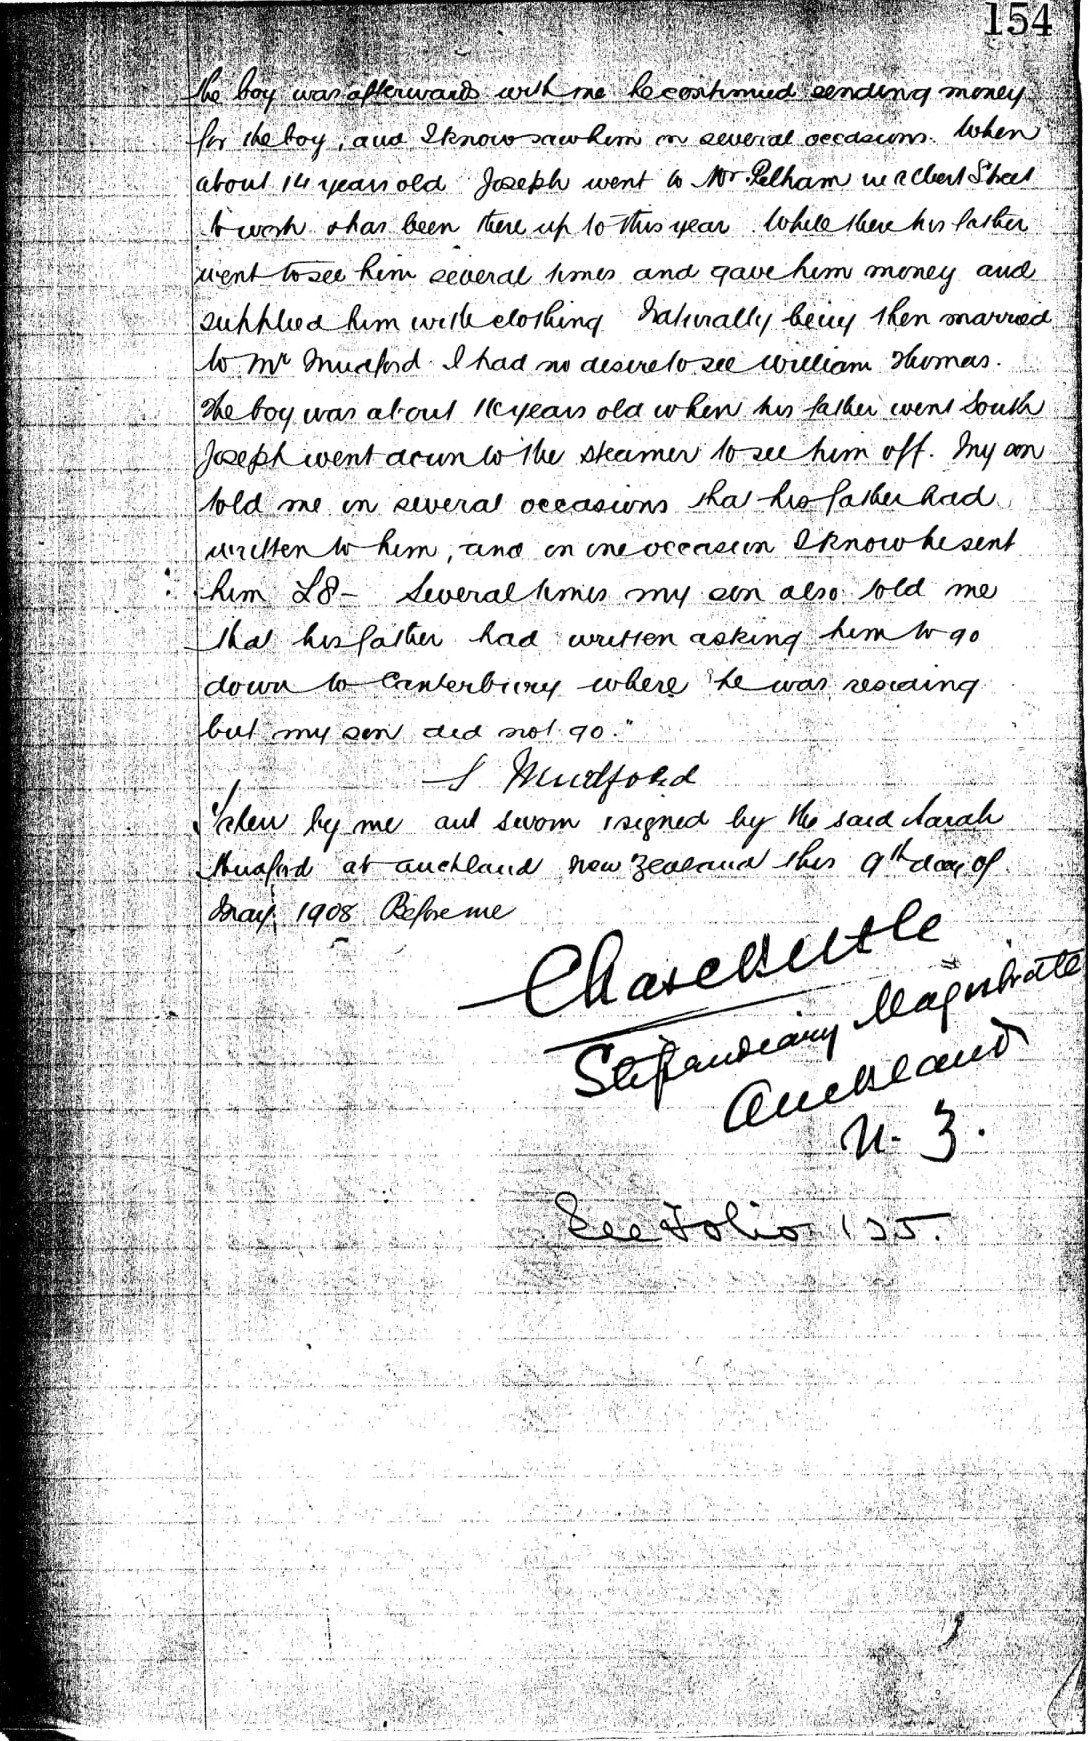 154
the boy was afterwards with me he continued sending money
for the boy, and I know saw him on several occasions. When
about 14 years old Joseph went to Mr Pelham in Albert Street
to work & has been there up to this year. While there his father
went to see him several times and gave him money and
supplied him with clothing Naturally being then married
to Mr Mudford I had no desire to see William Thomas.
The boy was about 16 years old when his father went South
Joseph went down to the steamer to see him off. My son
told me on several occasions that his father had
written to him, and on one occasion I know he sent
him £8– Several times my son also told me
that his father had written asking him to go
down to Canterbury where he was residing
but my son did not go."
S Mudford
Taken by me and sworn & signed by the said Sarah
Mudford at Auckland New Zealand this 9th day of
May 1908 Before me
Stipendiary Magistrate
Auckland
N. Z.
See Folio 155.